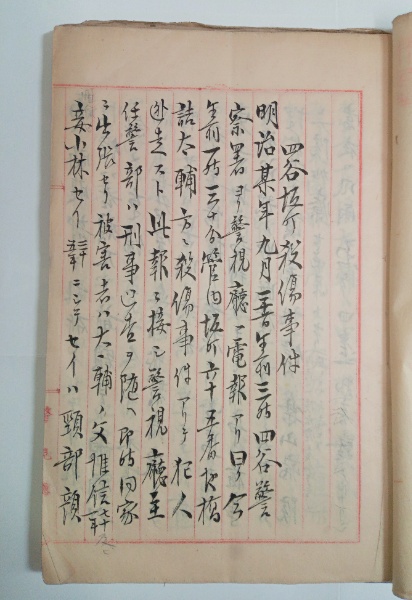 四谷坂町殺傷事件
明治某年九月三日午前三時四谷警
察署ヨリ警視廳ニ電報アリ曰ク今
午前一時三十分管内坂町六十五番地橋
詰大輔方ニ殺傷事件アリテ犯人
逃走スト此報ニ接シ警視廳主
任警部ハ刑事巡査ヲ随ヘ即時同家
ニ出張セリ被害者ハ大輔ノ父雅信七十
妾小林セイ三十五年ニシテセイハ頸部顔